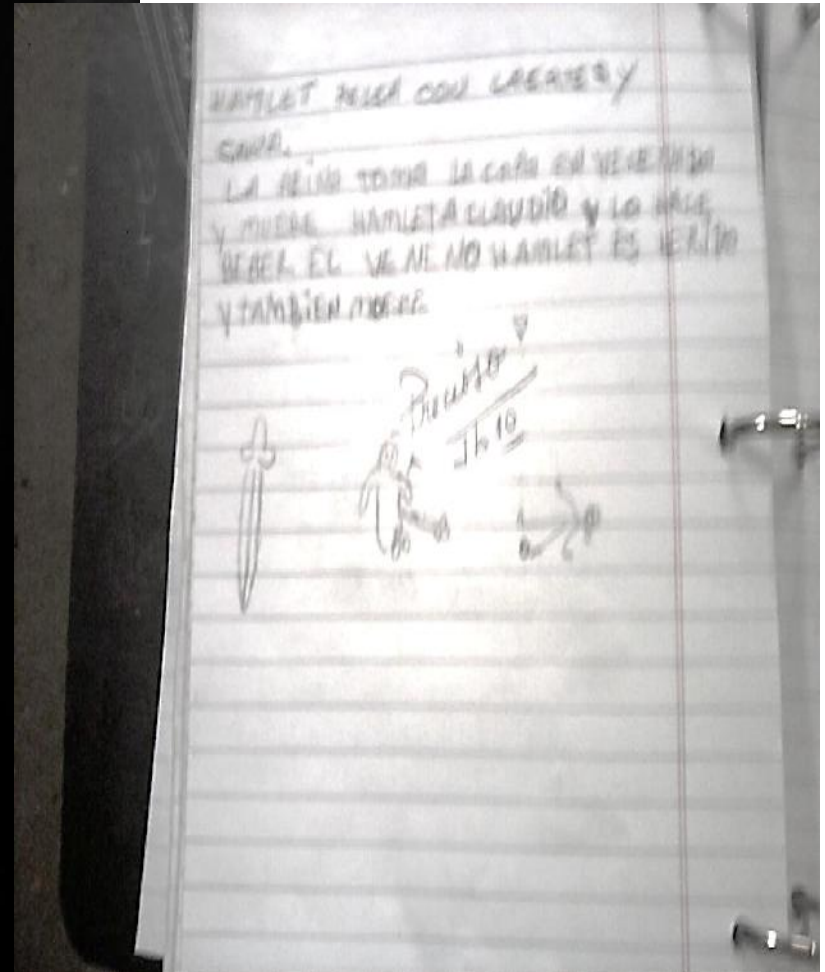 HAMLET PELEA CON LAERTES Y
GANA.
LA REINA TOMA LA COPA EN VENENADO
Y MUERE HAMLET A CLAUDIO Y LO HACE
BEBER EL VE NE NO HAMLET ES HERIDO
Y TAMBIEN MUERE
10